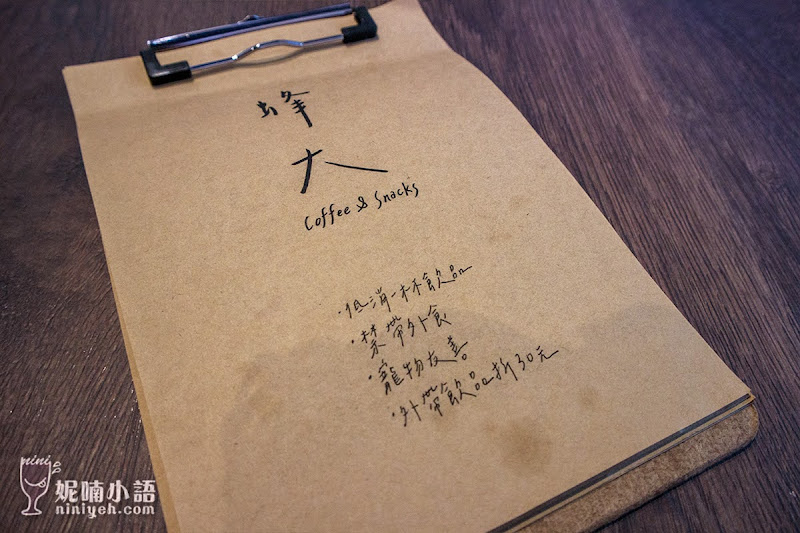 蜂
大
Coffee & Snacks
·低消一杯飲品
·禁帶外食
·寵物友善
·外帶飲品折30元
nini
妮喃小語
niniyeh.com